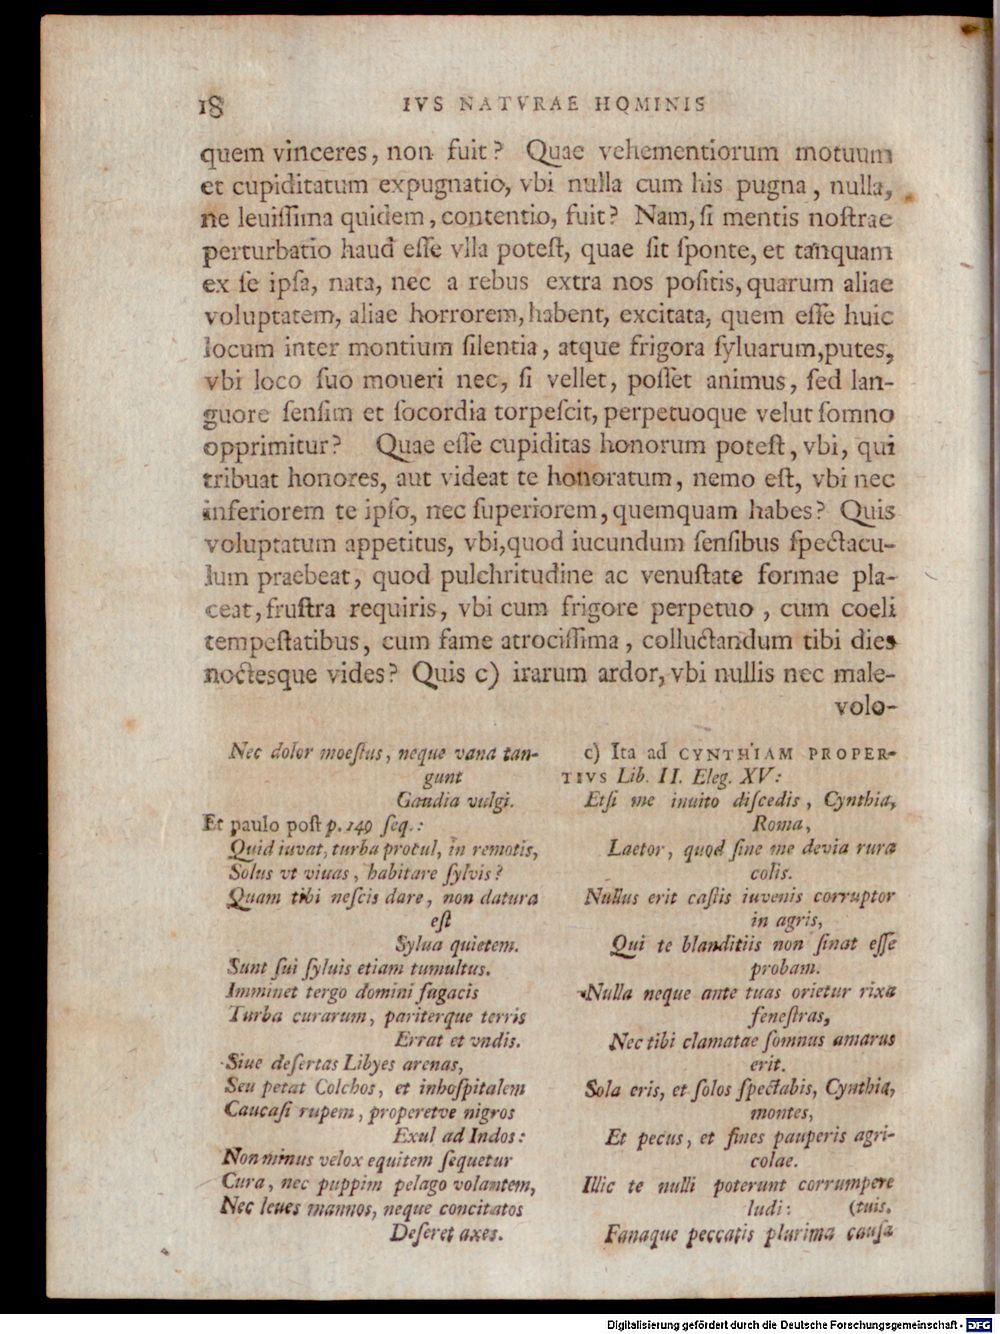 18 IVS NATVRAE HOMINIS
quem vinceres, non fuit? Quae vehementiorum motuum
et cupiditatum expugnatio, vbi nulla cum his pugna, nulla,
ne leuiſſima quidem, contentio, fuit? Nam, ſi mentis noſtrae
perturbatio haud eſſe vlla poteſt, quae ſit ſponte, et tanquam
ex ſe ipſa, nata, nec a rebus extra nos poſitis, quarum aliae
voluptatem, aliae horrorem, habent, excitata, quem eſſe huic
locum inter montium ſilentia, atque frigora ſyluarum, putes,
vbi loco ſuo moueri nec, ſi vellet, poſſet animus, ſed lan-
guore ſenſim et ſocordia torpeſcit, perpetuoque velut ſomno
opprimitur? Quae eſſe cupiditas honorum poteſt, vbi, qui
tribuat honores, aut videat te honoratum, nemo eſt, vbi nec
inferiorem te ipſo, nec ſuperiorem, quemquam habes? Quis
voluptatum appetitus, vbi, quod iucundum ſenſibus ſpectacu-
lum praebeat, quod pulchritudine ac venuſtate formae pla-
ceat, fruſtra requiris, vbi cum frigore perpetuo, cum coeli
tempeſtatibus, cum fame atrociſſima, colluctandum tibi dies
noctesque vides? Quis c) irarum ardor, vbi nullis nec male-
volo-
Nec dolor moeſtus, neque vana tan-
gunt
Gaudia vulgi.
Et paulo poſt p. 149 ſeq.:
Quid iuvat, turba procul, in remotis,
Solus vt viuas, habitare ſylvis?
Quam tibi neſcis dare, non datura
eſt
Sylua quietem.
Sunt ſui ſyluis etiam tumultus.
Imminet tergo domini fugacis
Turba curarum, pariterque terris
Errat et vndis.
Siue deſertas Libyes arenas,
Seu petat Colchos, et inhoſpitalem
Caucaſi rupem, properetve nigros
Exul ad Indos:
Non minus velox equitem ſequetur
Cura, nec puppim pelago volantem,
Nec leues mannos, neque concitatos
Deſeret axes.
c) Ita ad CYNTHIAM PROPER-
TIVS Lib. II. Eleg. XV:
Etſi me inuito diſcedis, Cynthia,
Roma,
Laetor, quod ſine me devia rura
colis.
Nullus erit caſtis iuvenis corruptor
in agris,
Qui te blanditiis non ſinat eſſe
probam.
Nulla neque ante tuas orietur rixa
feneſtras,
Nec tibi clamatae ſomnus amarus
erit.
Sola eris, et ſolos ſpectabis, Cynthia,
montes,
Et pecus, et fines pauperis agri-
colae.
Illic te nulli poterunt corrumpere
ludi: (tuis.
Fanaque peccatis plurima cauſa
Digitalisierung gefördert durch die Deutsche Forschungsgemeinschaft - DFG